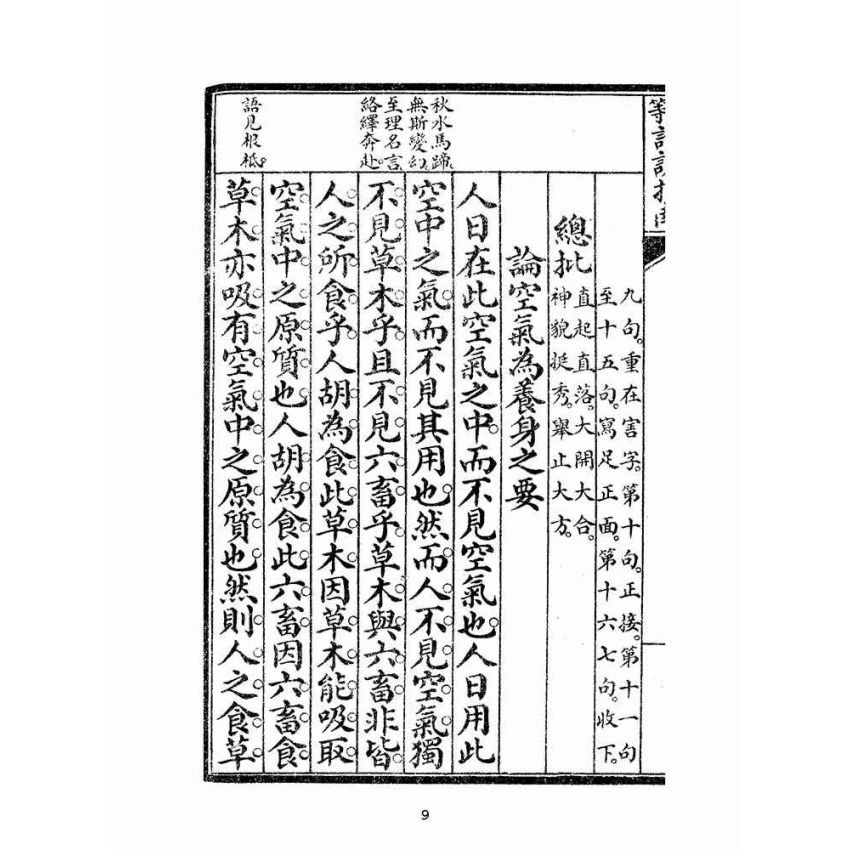 九句。重在害字。第十句。正接。第十一句
至十五句。寫足正面。第十六七句。收下。
總批
直起直落。大開大合。
神貌挺秀。舉止大方。
論空氣為養身之要
人日在此空氣之中而不見空氣也人日用此
空中之氣而不見其用也然而人不見空氣獨
不見草木乎且不見六畜乎草木與六畜非皆
人之所食乎人胡為食此草木因草木能吸取
空氣中之原質也人胡為食此六畜因六畜食
草木亦吸有空氣中之原質也然則人之食草
秋水馬蹄。
無斯變幻。
至理名言。
絡繹奔赴。
語見根柢。
9